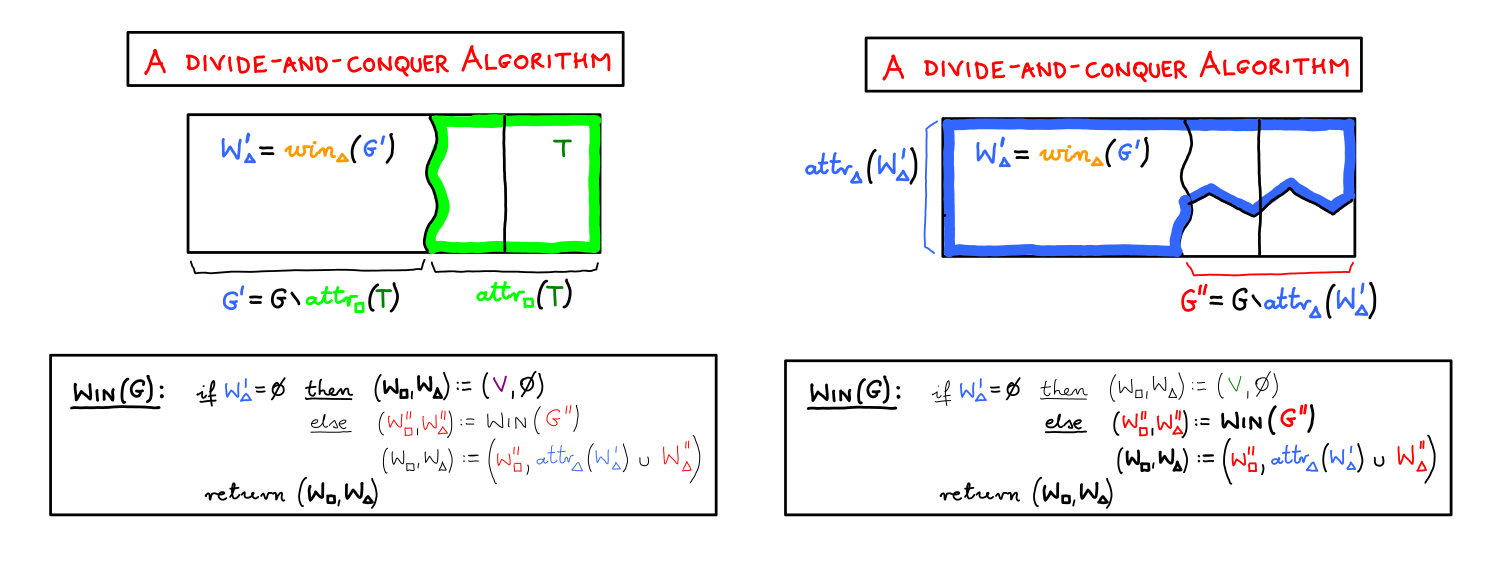 A DIVIDE-AND-CONQUER ALGORITHM
W'△ = win△(G')
T
G' = G \ attr□(T)
attr□(T)
WIN(G): if W'△ = ∅ then (W□, W△) := (V, ∅)
else (W''□, W''△) := WIN(G'')
(W□, W△) := (W''□, attr△(W'△) ∪ W''△)
return (W□, W△)
A DIVIDE-AND-CONQUER ALGORITHM
attr△(W'△)
W'△ = win△(G')
G'' = G \ attr△(W'△)
WIN(G): if W'△ = ∅ then (W□, W△) := (V, ∅)
else (W''□, W''△) := WIN(G'')
(W□, W△) := (W''□, attr△(W'△) ∪ W''△)
return (W□, W△)